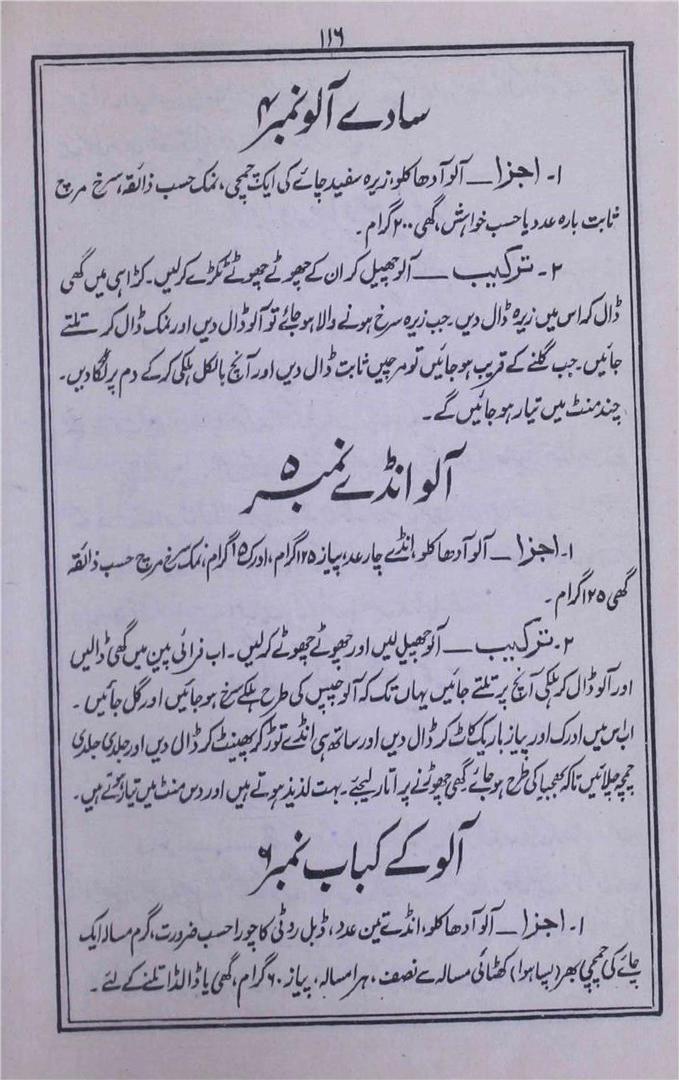 ۱۱۶
سادے آلو نمبر ۴
۱۔ اجزا ــ آلو آدھا کلو، زیرہ سفید چائے کی ایک چمچی، نمک حسب ذائقہ، سرخ مرچ
ثابت بارہ عدد یا حسب خواہش، گھی ۲۰۰ گرام۔
۲۔ ترکیب ــ آلو چھیل کر ان کے چھوٹے چھوٹے ٹکڑے کر لیں۔ کڑاہی میں گھی
ڈال کہ اس میں زیرہ ڈال دیں۔ جب زیرہ سرخ ہونے والا ہو جائے تو آلو ڈال دیں اور نمک ڈال کر تلتے
جائیں۔ جب گلنے کے قریب ہو جائیں تو مرچیں ثابت ڈال دیں اور آنچ بالکل ہلکی کر کے دم پر لگا دیں۔
چند منٹ میں تیار ہو جائیں گے۔
آلو انڈے نمبر ۵
۱۔ اجزا ــ آلو آدھا کلو، انڈے چار عدد، پیاز ۱۲۵ گرام، ادرک ۱۵ گرام، نمک سرخ مرچ حسب ذائقہ
گھی ۱۲۵ گرام۔
۲۔ ترکیب ــ آلو چھیل لیں اور چھوٹے چھوٹے کر لیں۔ اب فرائی پین میں گھی ڈالیں
اور آلو ڈال کر ہلکی آنچ پر تلتے جائیں یہاں تک کہ آلو چپس کی طرح ہلکے سرخ ہو جائیں اور گل جائیں۔
اب اس میں ادرک اور پیاز باریک کاٹ کر ڈال دیں اور ساتھ ہی انڈے توڑ کر پھینٹ کر ڈال دیں اور جلدی جلدی
چمچہ چلائیں تاکہ بھجیا کی طرح ہو جائے گھی چھوڑنے پر اتار لیجئے۔ بہت لذیذ ہوتے ہیں اور دس منٹ میں تیار ہوتے ہیں۔
آلو کے کباب نمبر ۶
۱۔ اجزا ــ آلو آدھا کلو، انڈے تین عدد، ڈبل روٹی کا چورا حسب ضرورت، گرم مسالہ ایک
چائے کی چمچی بھر (پسا ہوا) کھٹائی مسالہ سے نصف، ہرا مسالہ، پیاز ۶۰ گرام، گھی یا ڈالڈا تلنے کے لئے۔